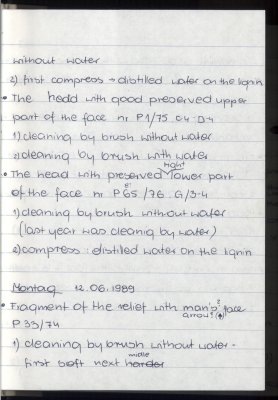 without water
2) first compress → distilled water on the lignin
• The head with good preserved upper
part of the face nr P1/75 C4-D4
1) cleaning by brush without water
2) cleaning by brush with water
right
• The head with preserved lower part
of the face nr P65/76 G/3-4
1) cleaning by brush without water
(last year was cleaning by water)
2) compress: distilled water on the lignin
Montag 12.06.1989
• Fragment of the relief with man's? face
arrow?
P 33/74
1) cleaning by brush without water -
first soft next harder